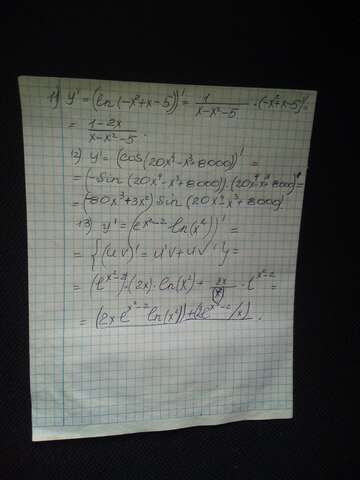 11) y' = (ln(-x²+x-5))' = 1/(x-x²-5) · (-x²+x-5)' =
= (1-2x)/(x-x²-5).
12) y' = (cos(20x⁴-x³+8000))' =
= (-sin(20x⁴-x³+8000))·(20x⁴-x³+8000)' =
= (-80x³+3x²) sin(20x⁴-x³+8000)
13) y' = (e^(x²-2) ln(x²))' =
= {(uv)' = u'v + uv'} =
= (e^(x²-2))·(2x)·ln(x²) + 2x/(x²) · e^(x²-2) =
= (2x e^(x²-2) ln(x²)) + (2e^(x²-2)/x).